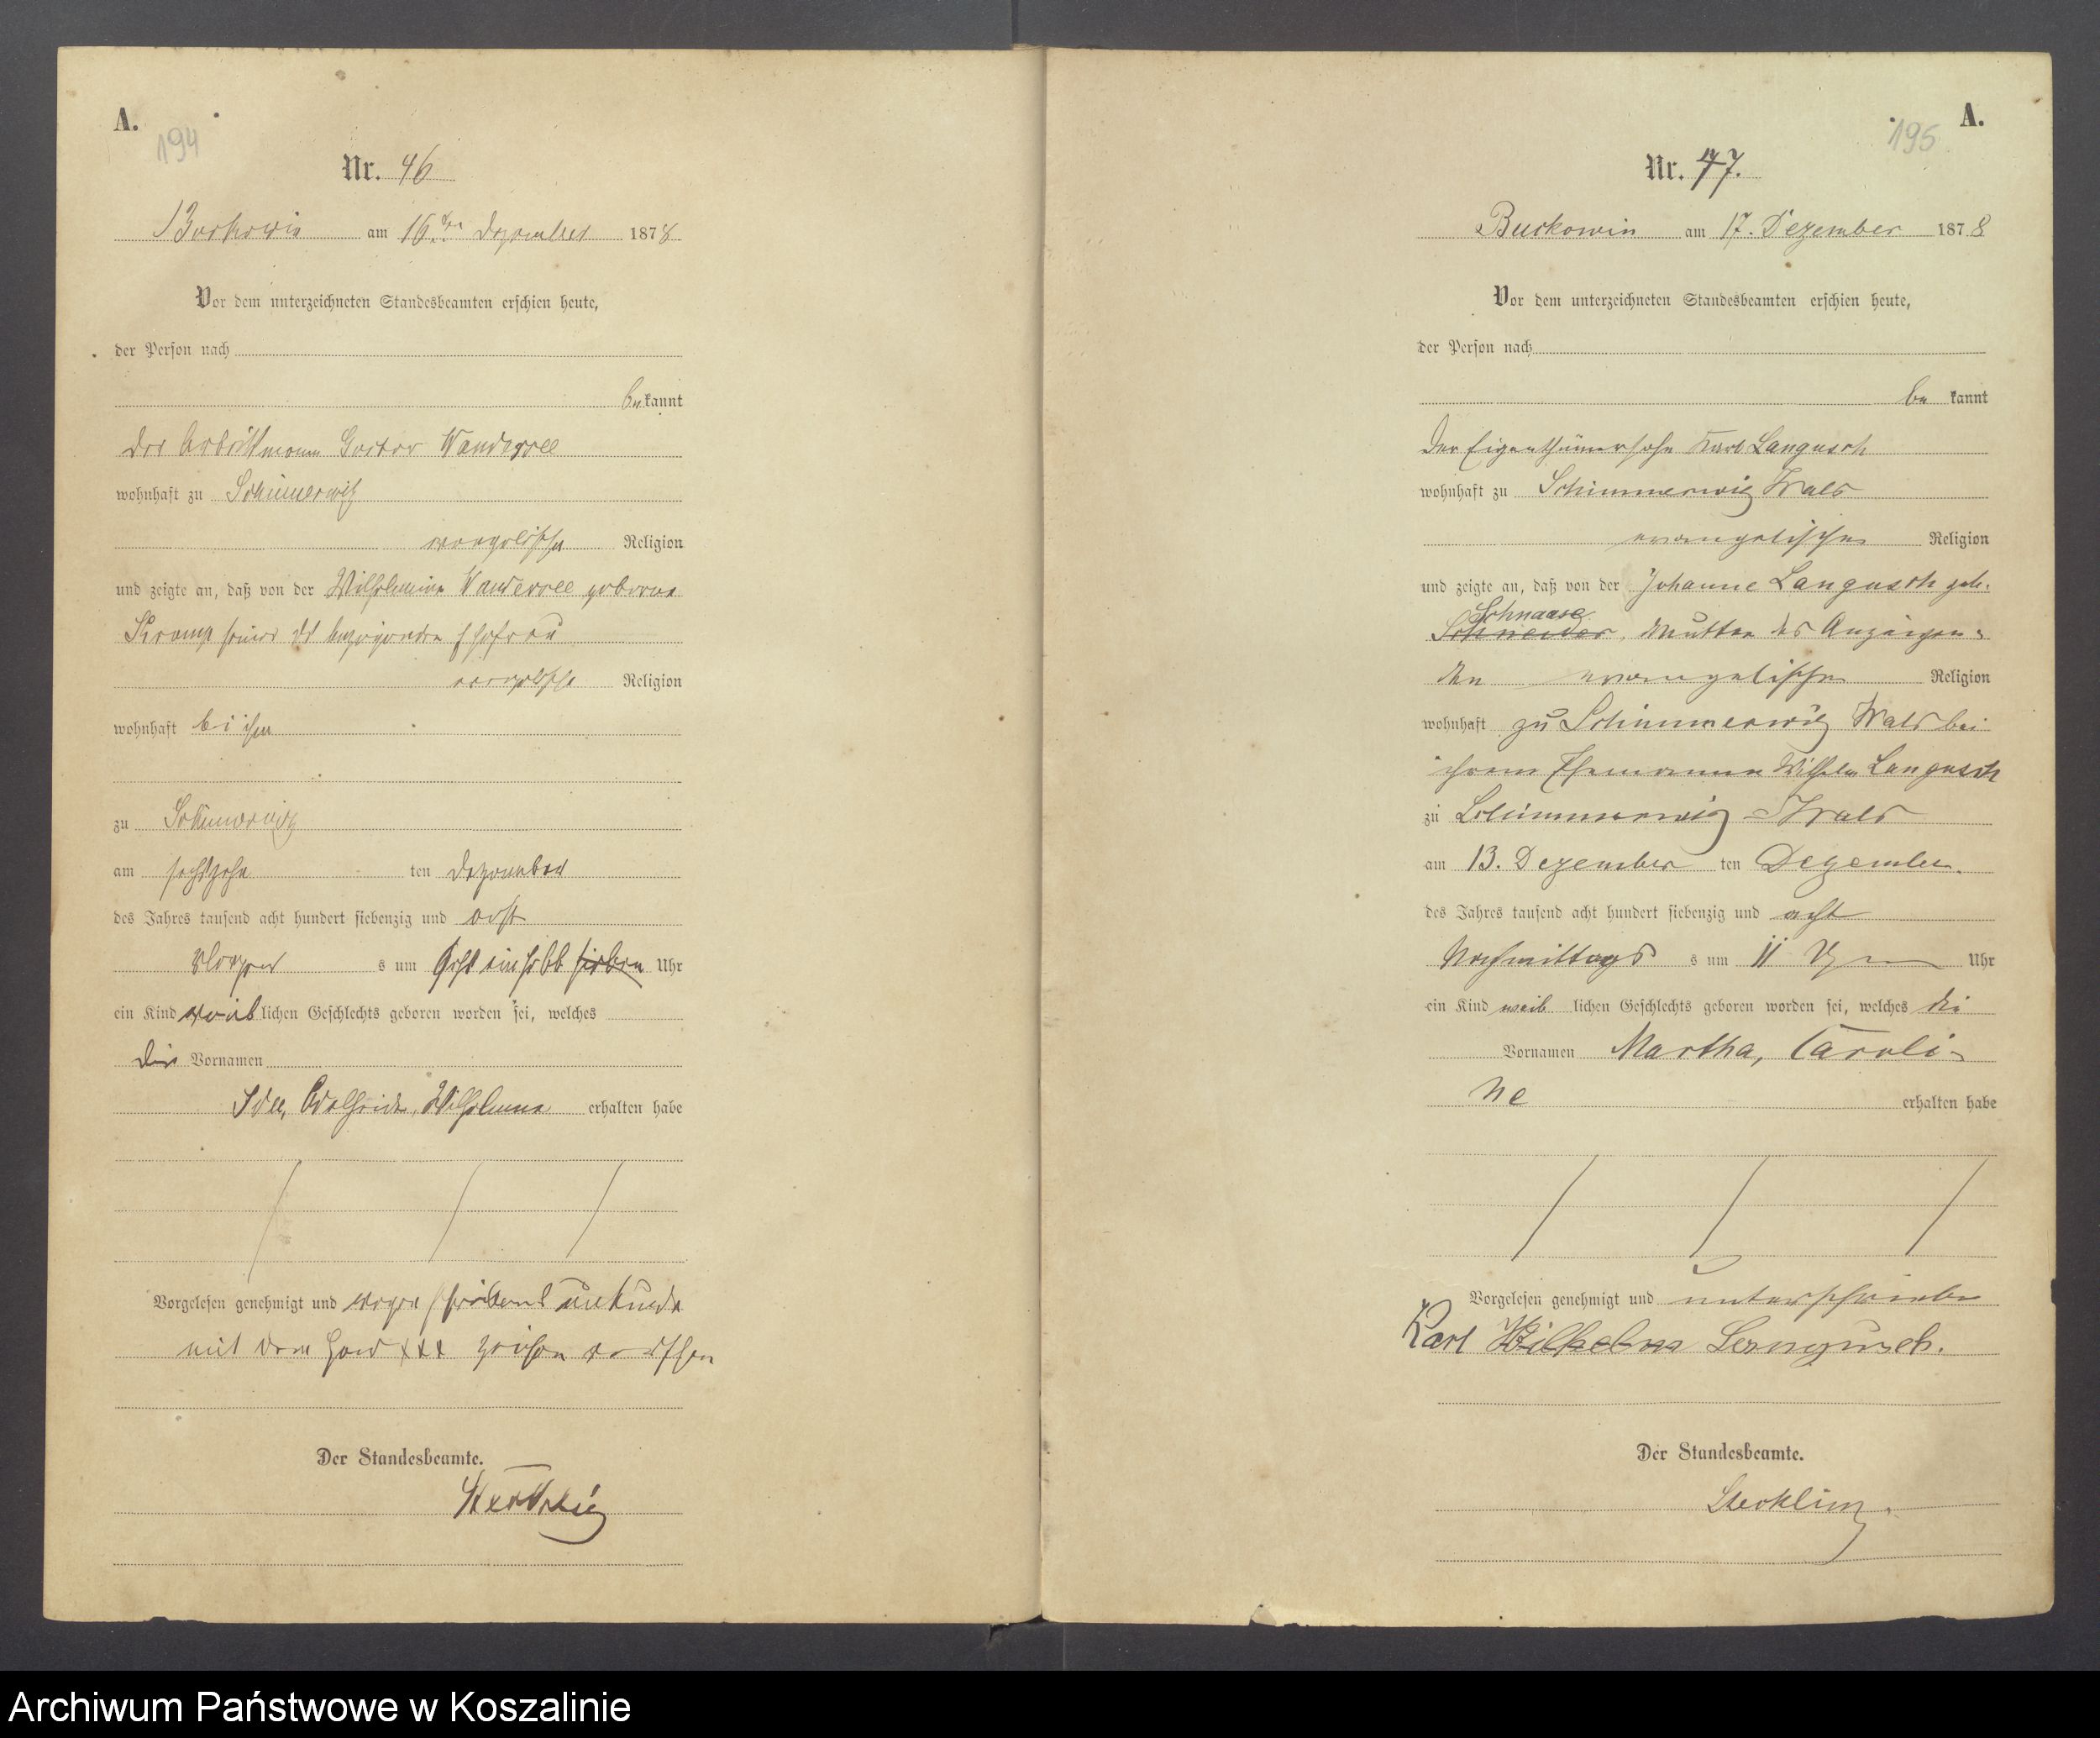 A.
194
Nr. 46
Buckowin am 16ten Dezember 1878
Vor dem unterzeichneten Standesbeamten erschien heute,
der Person nach
bekannt
der Arbeitsmann Gustav Wandersee
wohnhaft zu Schimmerwitz
evangelischer Religion
und zeigte an, daß von der Wilhelmine Wandersee geborne
Kramp seiner des Anzeigenden Ehefrau
evangelischer Religion
wohnhaft bei ihm
zu Schimmerwitz
am sechszehn ten Dezember
des Jahres tausend acht hundert siebenzig und acht
Morgen s um acht einhalb sieben Uhr
ein Kind weiblichen Geschlechts geboren worden sei, welches
die Vornamen
Ida, Adelheide, Wilhelmine erhalten habe
Vorgelesen genehmigt und wegen schreibens unkunde
mit dem Hand xxx zeichen versehen
Der Standesbeamte.
A.
195
Nr. 47.
Buckowin am 17. Dezember 1878
Vor dem unterzeichneten Standesbeamten erschien heute,
der Person nach
be kannt
der Eigenthümersohn Karl Langusch
wohnhaft zu Schimmerwitz Wald
evangelischer Religion
und zeigte an, daß von der Johanne Langusch geb.
Schnaase
Schneider, Mutter des Anzeigen-
den evangelischer Religion
wohnhaft zu Schimmerwitz Wald bei
ihrem Ehemanne Wilhelm Langusch
zu Schimmerwitz-Wald
am 13. Dezember ten Dezember.
des Jahres tausend acht hundert siebenzig und acht
Nachmittags s um 11 Uhr Uhr
ein Kind weib lichen Geschlechts geboren worden sei, welches die
Vornamen Martha, Caroli-
ne erhalten habe
Vorgelesen genehmigt und unterschrieben
Karl Wilhelm Langusch.
Der Standesbeamte.
Archiwum Państwowe w Koszalinie